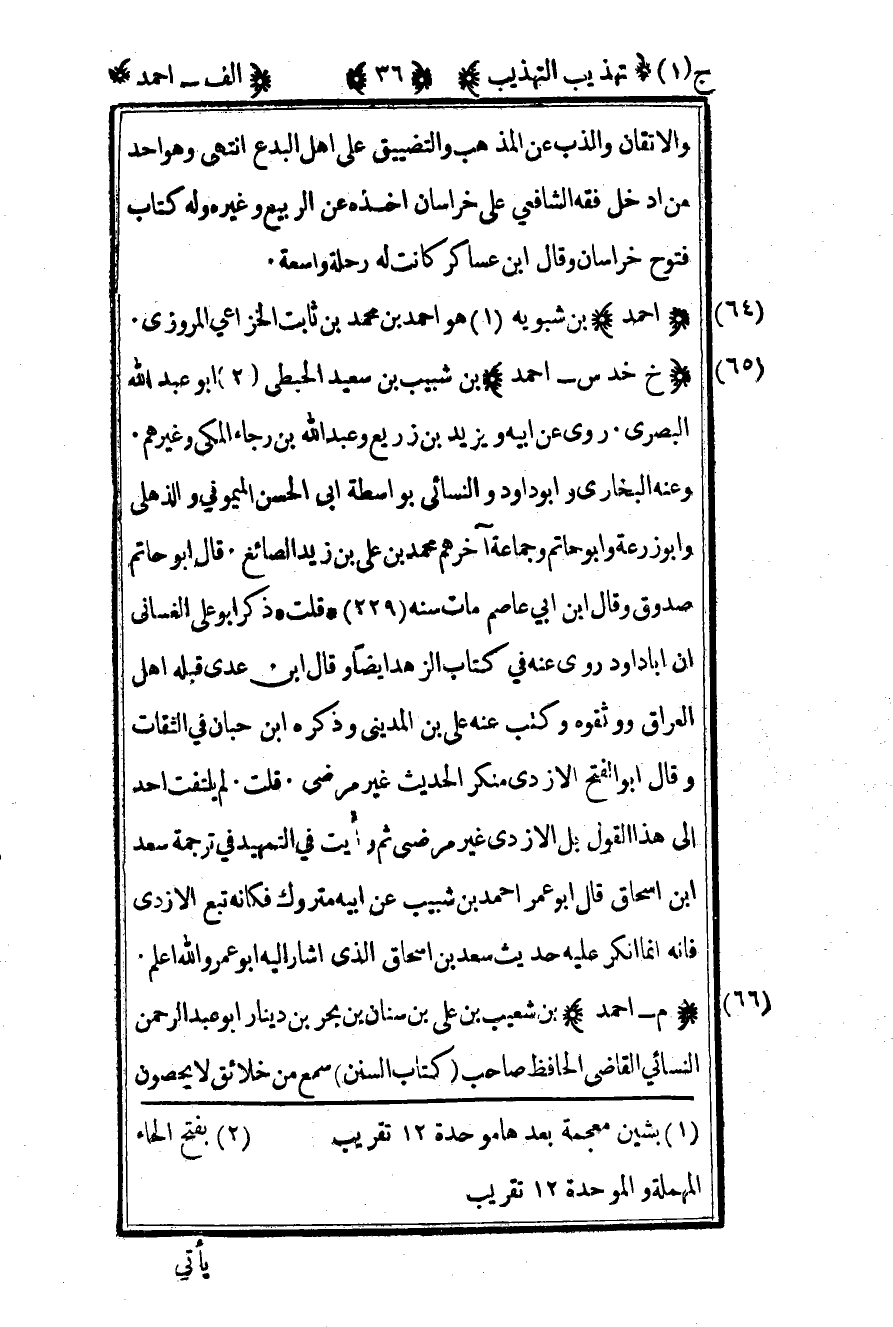 ج(١) ﴿ تهذيب التهذيب ﴾ ﴿ ٣٦ ﴾ ﴿ الف ـ احمد ﴾
والاتقان والذب عن المذهب والتضييق على اهل البدع انتهى وهو احد
من ادخل فقه الشافعي على خراسان اخذه عن الربيع وغيره وله كتاب
فتوح خراسان وقال ابن عساكر كانت له رحلة واسعة ٠
(٦٤) ﴿ احمد ﴾ بن شبويه (١) هو احمد بن محمد بن ثابت الخزاعي المروزى ٠
(٦٥) ﴿ خ خد س ـ احمد ﴾ بن شبيب بن سعيد الحبطى (٢) ابو عبد الله
البصرى ٠ روى عن ابيه ويزيد بن زريع وعبدالله بن رجاء المكي وغيرهم ٠
وعنه البخارى وابو داود والنسائى بواسطة ابى الحسن الميموني والذهلى
وابو زرعة وابو حاتم وجماعة آخرهم محمد بن على بن زيد الصائغ ٠ قال ابو حاتم
صدوق وقال ابن ابي عاصم مات سنه (٢٢٩) *قلت* ذكر ابو على الغسانى
ان اباداود روى عنه في كتاب الزهد ايضاً وقال ابن ٠ عدى قبله اهل
العراق ووثقوه وكتب عنه على بن المدينى وذكره ابن حبان في الثقات
وقال ابو الفتح الازدى منكر الحديث غير مرضى ٠ قلت ٠ لم يلتفت احد
الى هذا القول بل الازدى غير مرضى ثم رأيت في التمهيد في ترجمة سعد
ابن اسحاق قال ابو عمر احمد بن شبيب عن ابيه متروك فكانه تبع الازدى
فانه انما انكر عليه حديث سعد بن اسحاق الذى اشار اليه ابو عمر والله اعلم ٠
(٦٦) ﴿ م ـ احمد ﴾ بن شعيب بن على بن سنان بن بحر بن دينار ابو عبد الرحمن
النسائي القاضى الحافظ صاحب (كتاب السنن) سمع من خلائق لا يحصون
(١) بشين معجمة بعد ها موحدة ١٢ تقريب (٢) بفتح الحاء
المهملة و الموحدة ١٢ تقريب
يأتي